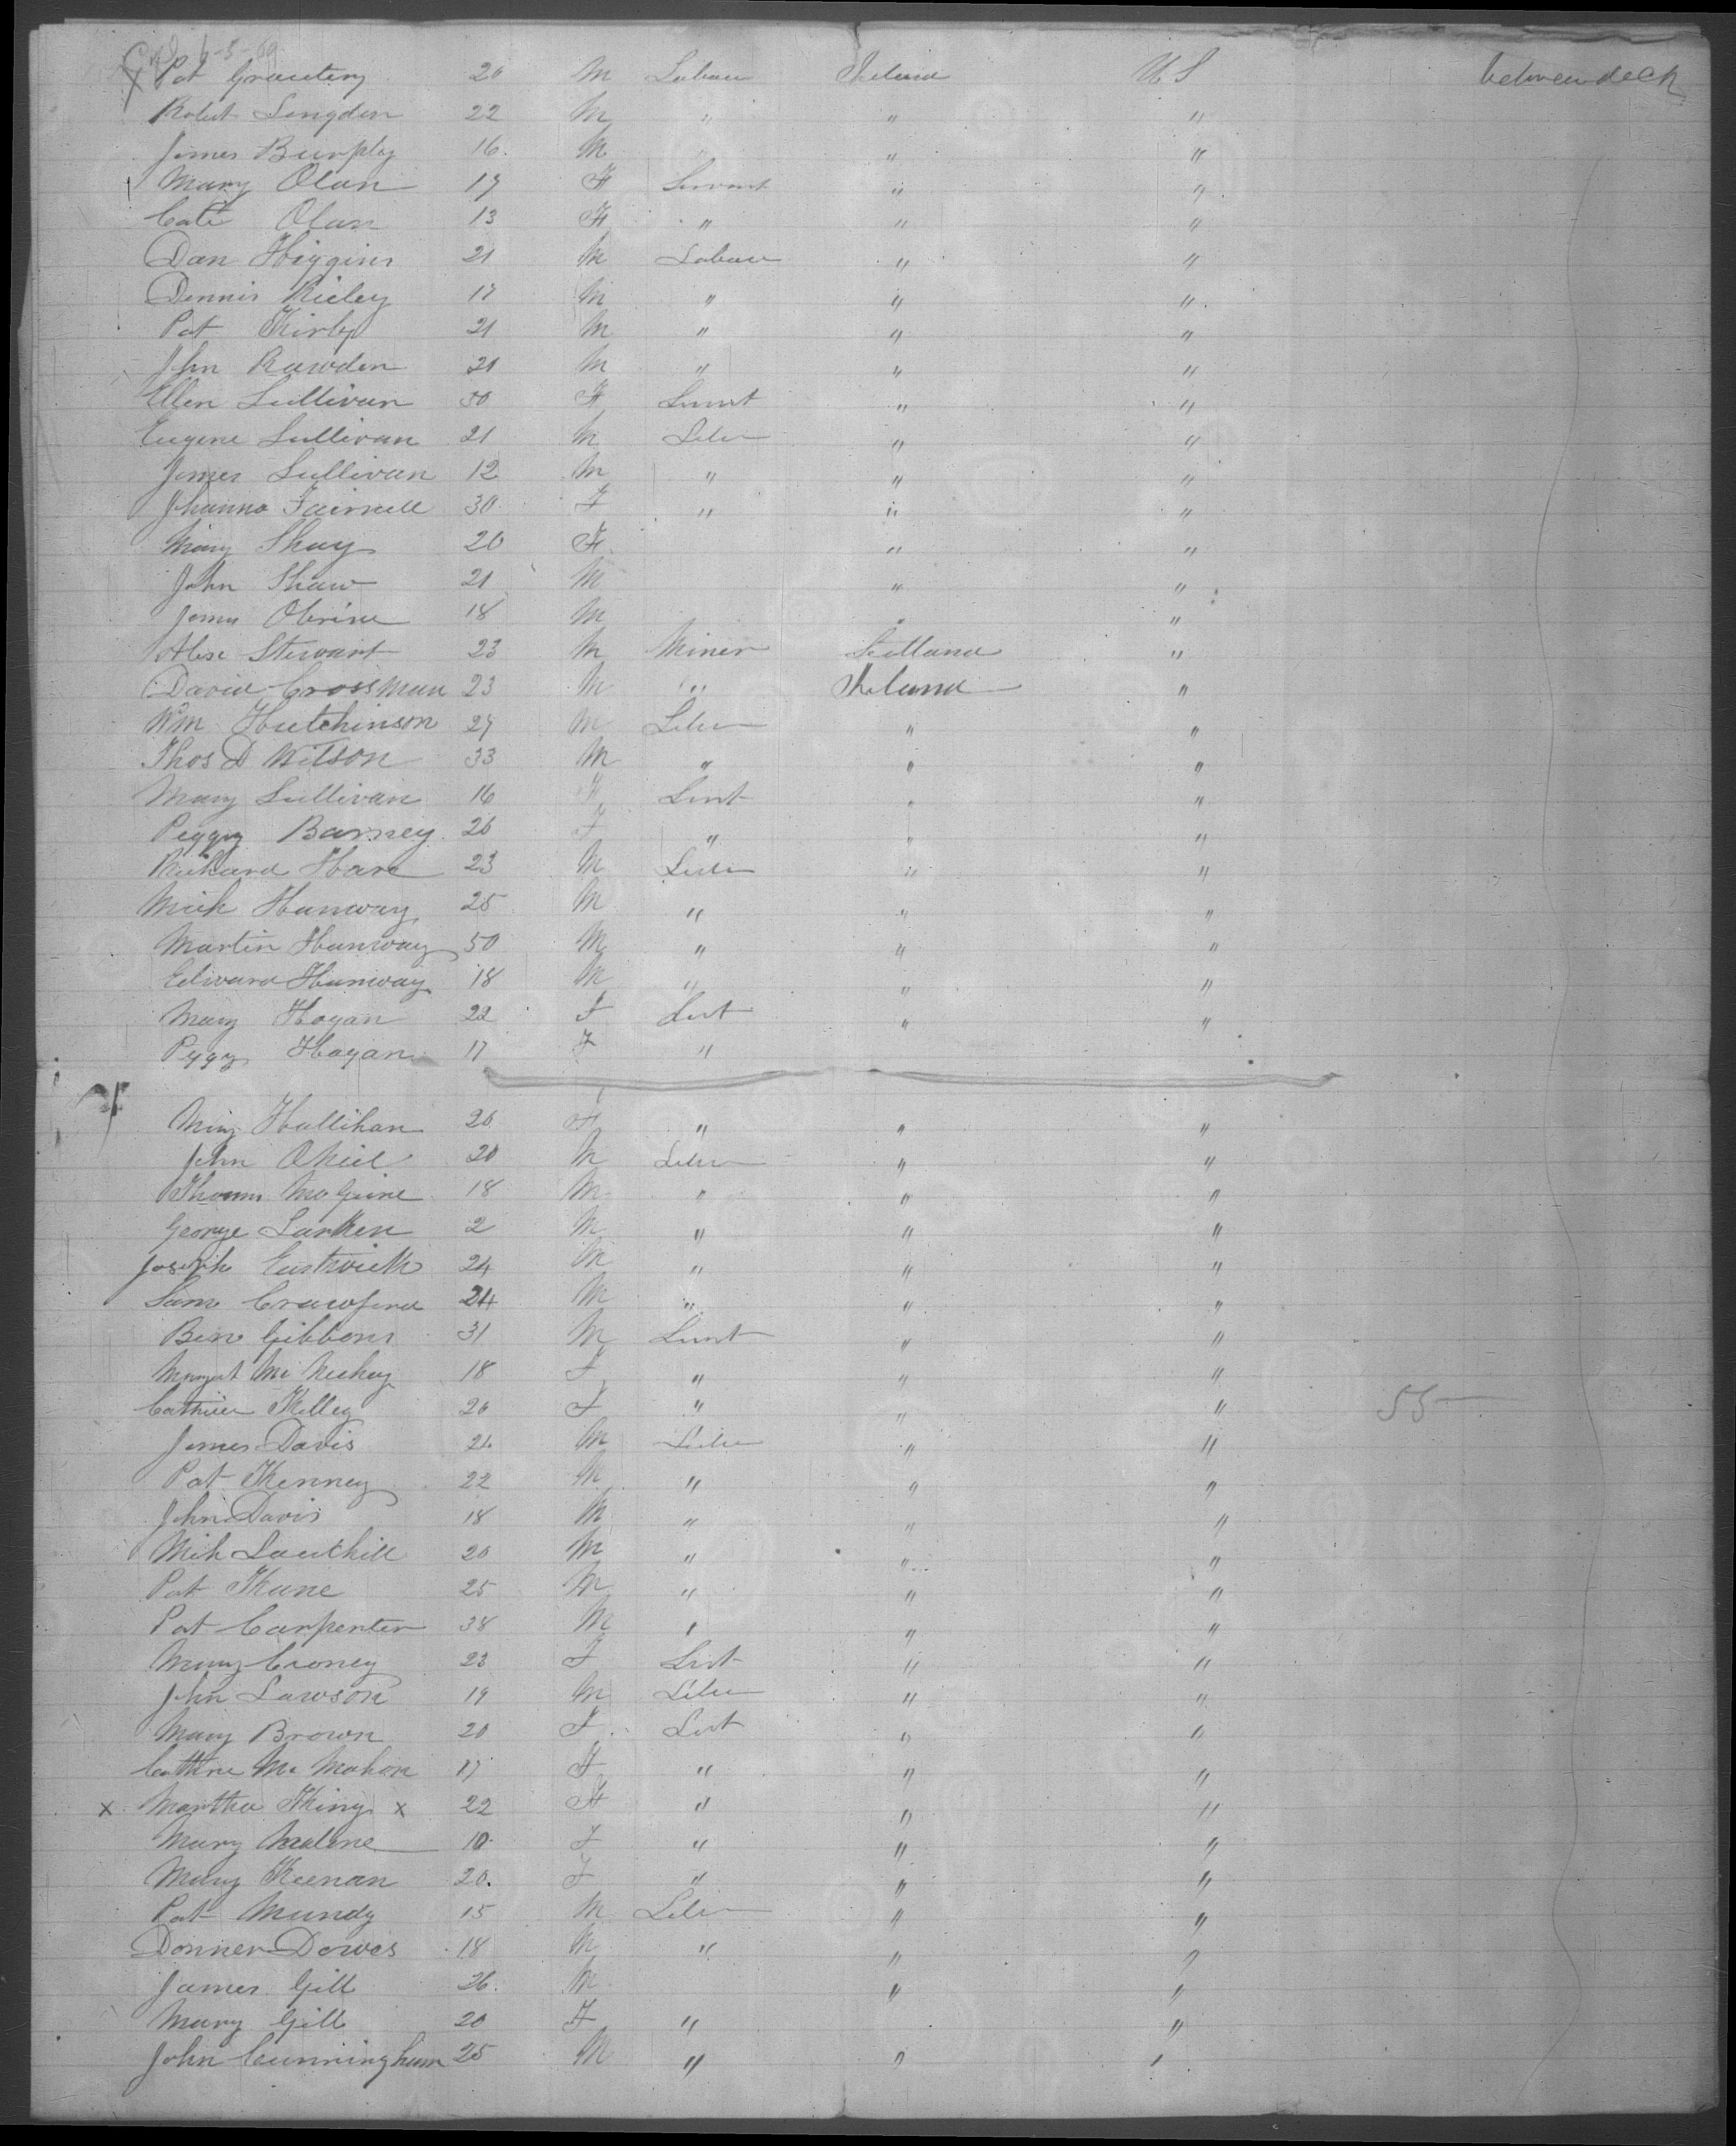 6-5-69
X Pat 20 M Labour Ireland U S between deck
Robert Langden 22 M " " "
James 16. M " "
Mary Olan 17 F Servant " "
Cate Olan 13 F " " "
Dan Higgins 21 M Labour " "
Dennis Rieley 17 M " " "
Pat Kirby 21 M " " "
John Rawden 21 M " " "
Ellen Sullivan 50 F Servt " "
Eugene Sullivan 21 M Labr " "
James Sullivan 12 M " " "
Johanna 30 F " " "
Mary Shay 20 F " "
John Shaw 21 M " "
James Obrine 18 M " "
Alex Stewart 23 M Miner Scotland "
David Crossman 23 M " Ireland "
Wm Hutchinson 27 M Labr " "
Thos D Wilson 33 M " " "
Mary Sullivan 16 F Servt " "
Peggy Barney 26 F " " "
Richard Hare 23 M Labr " "
Mich Hanway 25 M " " "
Martin Hanway 50 M " " "
Edward Hanway 18 M " " "
Mary Hogan 22 F Servt " "
Peggy Hogan 17 F "
Mary Hallihan 20 F " " "
John ONiel 20 M Labr " "
Thomas McGuire 18 M " " "
George Larken 2 M " " "
Joseph Eustwick 24 M " " "
Sam Crawford 24 M " " "
Ben Gibbons 31 M Servt " "
Margat Mc 18 F " " "
Kelley 20 F " " " 55
James Davis 21 M Labr " "
Pat Kenney 22 M " " "
John Davis 18 M " " "
Mih 20 M " " "
Pat Kane 25 M " " "
Pat Carpenter 38 M " " "
Mary Croney 23 F Servt " "
John Lawson 19 M Labr " "
Mary Brown 20 F Servt " "
Cathrne Mc Mahon 17 F " " "
x Martha King x 22 F " " "
Mary Malone 10 F " " "
Mary Keenan 20. F " " "
Pat Mundy 15 M Labr " "
Dawes 18 M " " "
James Gill 26. M " "
Mary Gill 20 F " " "
John Cunningham 25 M " " "